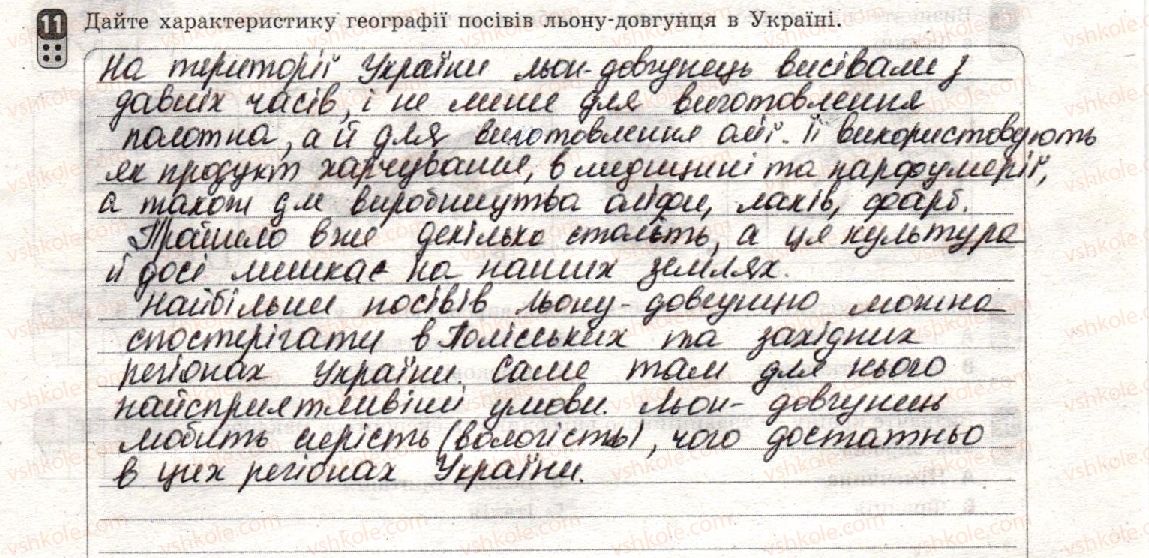 11 Дайте характеристику географії посівів льону-довгунця в Україні.
На території України льон-довгунець висівали з
давніх часів, і не лише для виготовлення
полотна, а й для виготовлення олії. Її використовують
як продукт харчування, в медицині та парфумерії,
а також для виробництва оліфи, лаків, фарб.
Пройшло вже декілька століть, а ця культура
й досі мешкає на наших землях.
Найбільше посівів льону-довгунцю можна
спостерігати в Поліських та західних
регіонах України. Саме там для нього
найсприятливіші умови. Льон-довгунець
любить сирість (вологість), чого достатньо
в цих регіонах України.